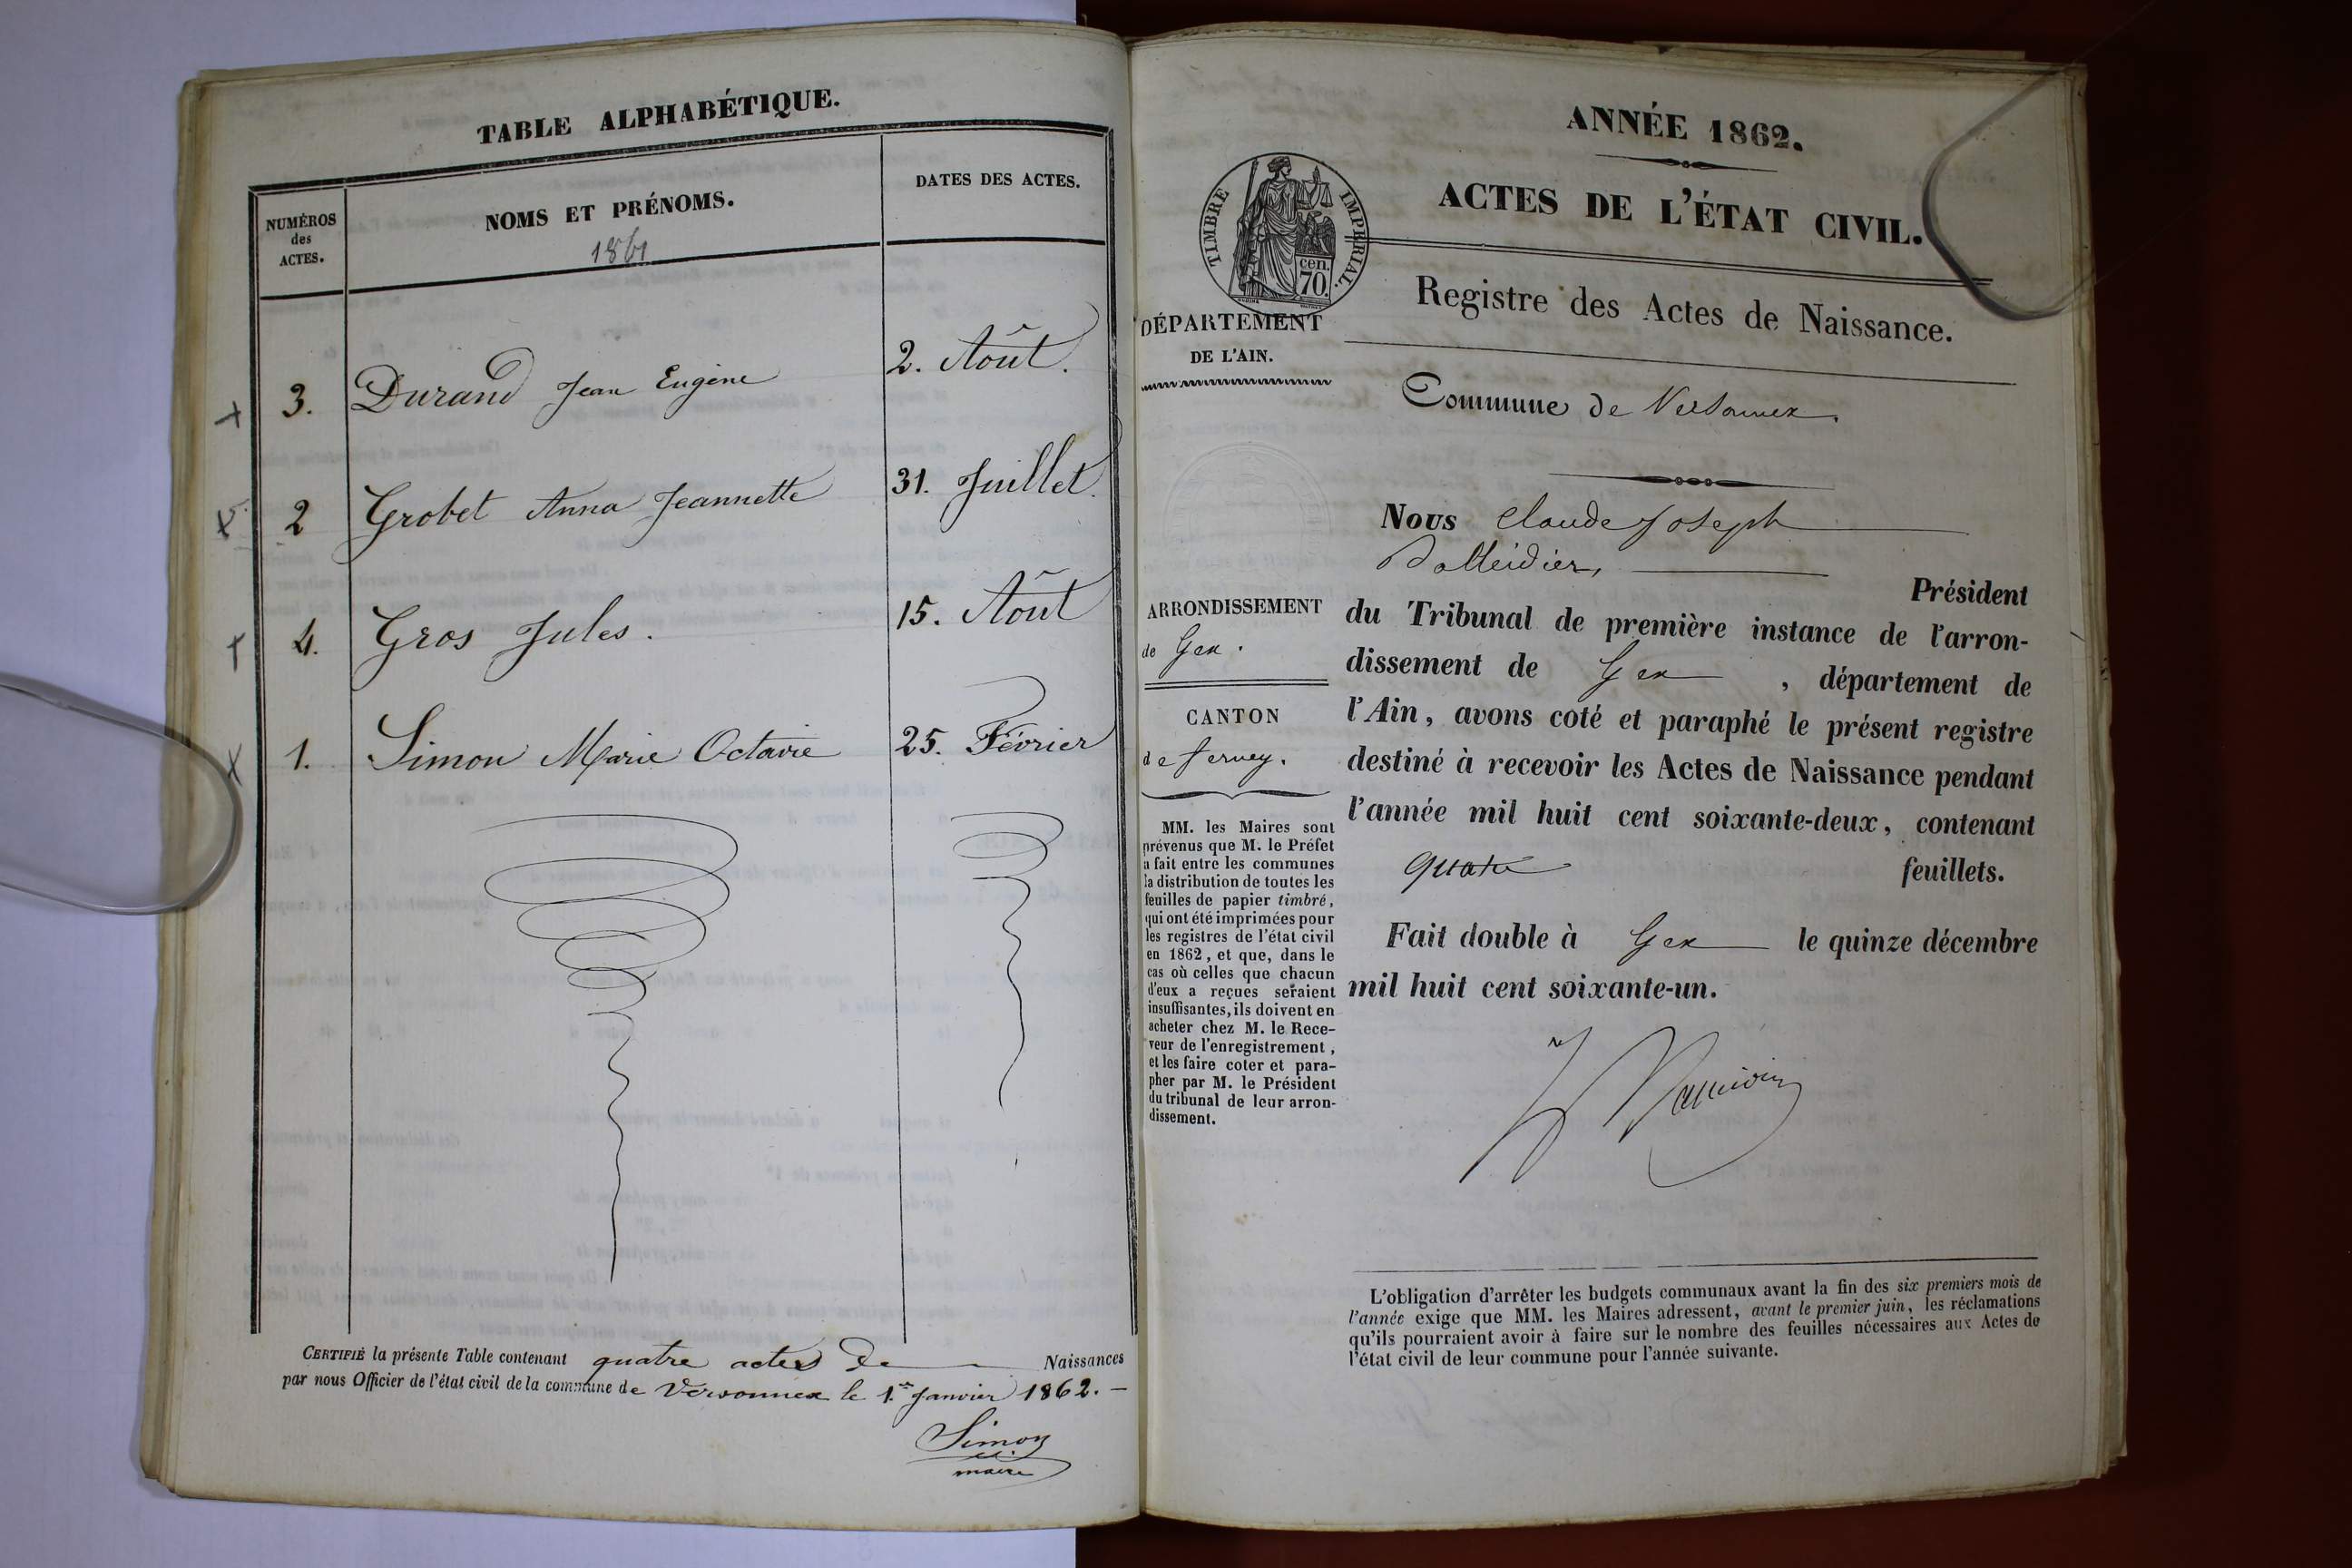 TABLE ALPHABÉTIQUE.
NUMÉROS
des
ACTES.
NOMS ET PRÉNOMS.
1861
DATES DES ACTES.
3. Durand Jean Eugène 2. Août.
2 Grobet Anna Jeannette 31. Juillet.
4. Gros Jules. 15. Août
1. Simon Marie Octavie 25. Février
CERTIFIÉ la présente Table contenant quatre actes De Naissances
par nous Officier de l'état civil de la commune de Versonnex le 1.er Janvier 1862. —
Simon
maire
ANNÉE 1862.
ACTES DE L'ÉTAT CIVIL.
TIMBRE IMPÉRIAL.
70. cen.
Registre des Actes de Naissance.
DÉPARTEMENT
DE L'AIN.
Commune de Versonnex.
Nous Claude Joseph
Président
ARRONDISSEMENT
de Gex.
CANTON
de Ferney.
du Tribunal de première instance de l'arron-
dissement de Gex, département de
l'Ain, avons coté et paraphé le présent registre
destiné à recevoir les Actes de Naissance pendant
l'année mil huit cent soixante-deux, contenant
quatre feuillets.
Fait double à Gex le quinze décembre
mil huit cent soixante-un.
MM. les Maires sont
prévenus que M. le Préfet
a fait entre les communes
la distribution de toutes les
feuilles de papier timbré,
qui ont été imprimées pour
les registres de l'état civil
en 1862, et que, dans le
cas où celles que chacun
d'eux a reçues seraient
insuffisantes, ils doivent en
acheter chez M. le Rece-
veur de l'enregistrement,
et les faire coter et para-
pher par M. le Président
du tribunal de leur arron-
dissement.
L'obligation d'arrêter les budgets communaux avant la fin des six premiers mois de
l'année exige que MM. les Maires adressent, avant le premier juin, les réclamations
qu'ils pourraient avoir à faire sur le nombre des feuilles nécessaires aux Actes de
l'état civil de leur commune pour l'année suivante.